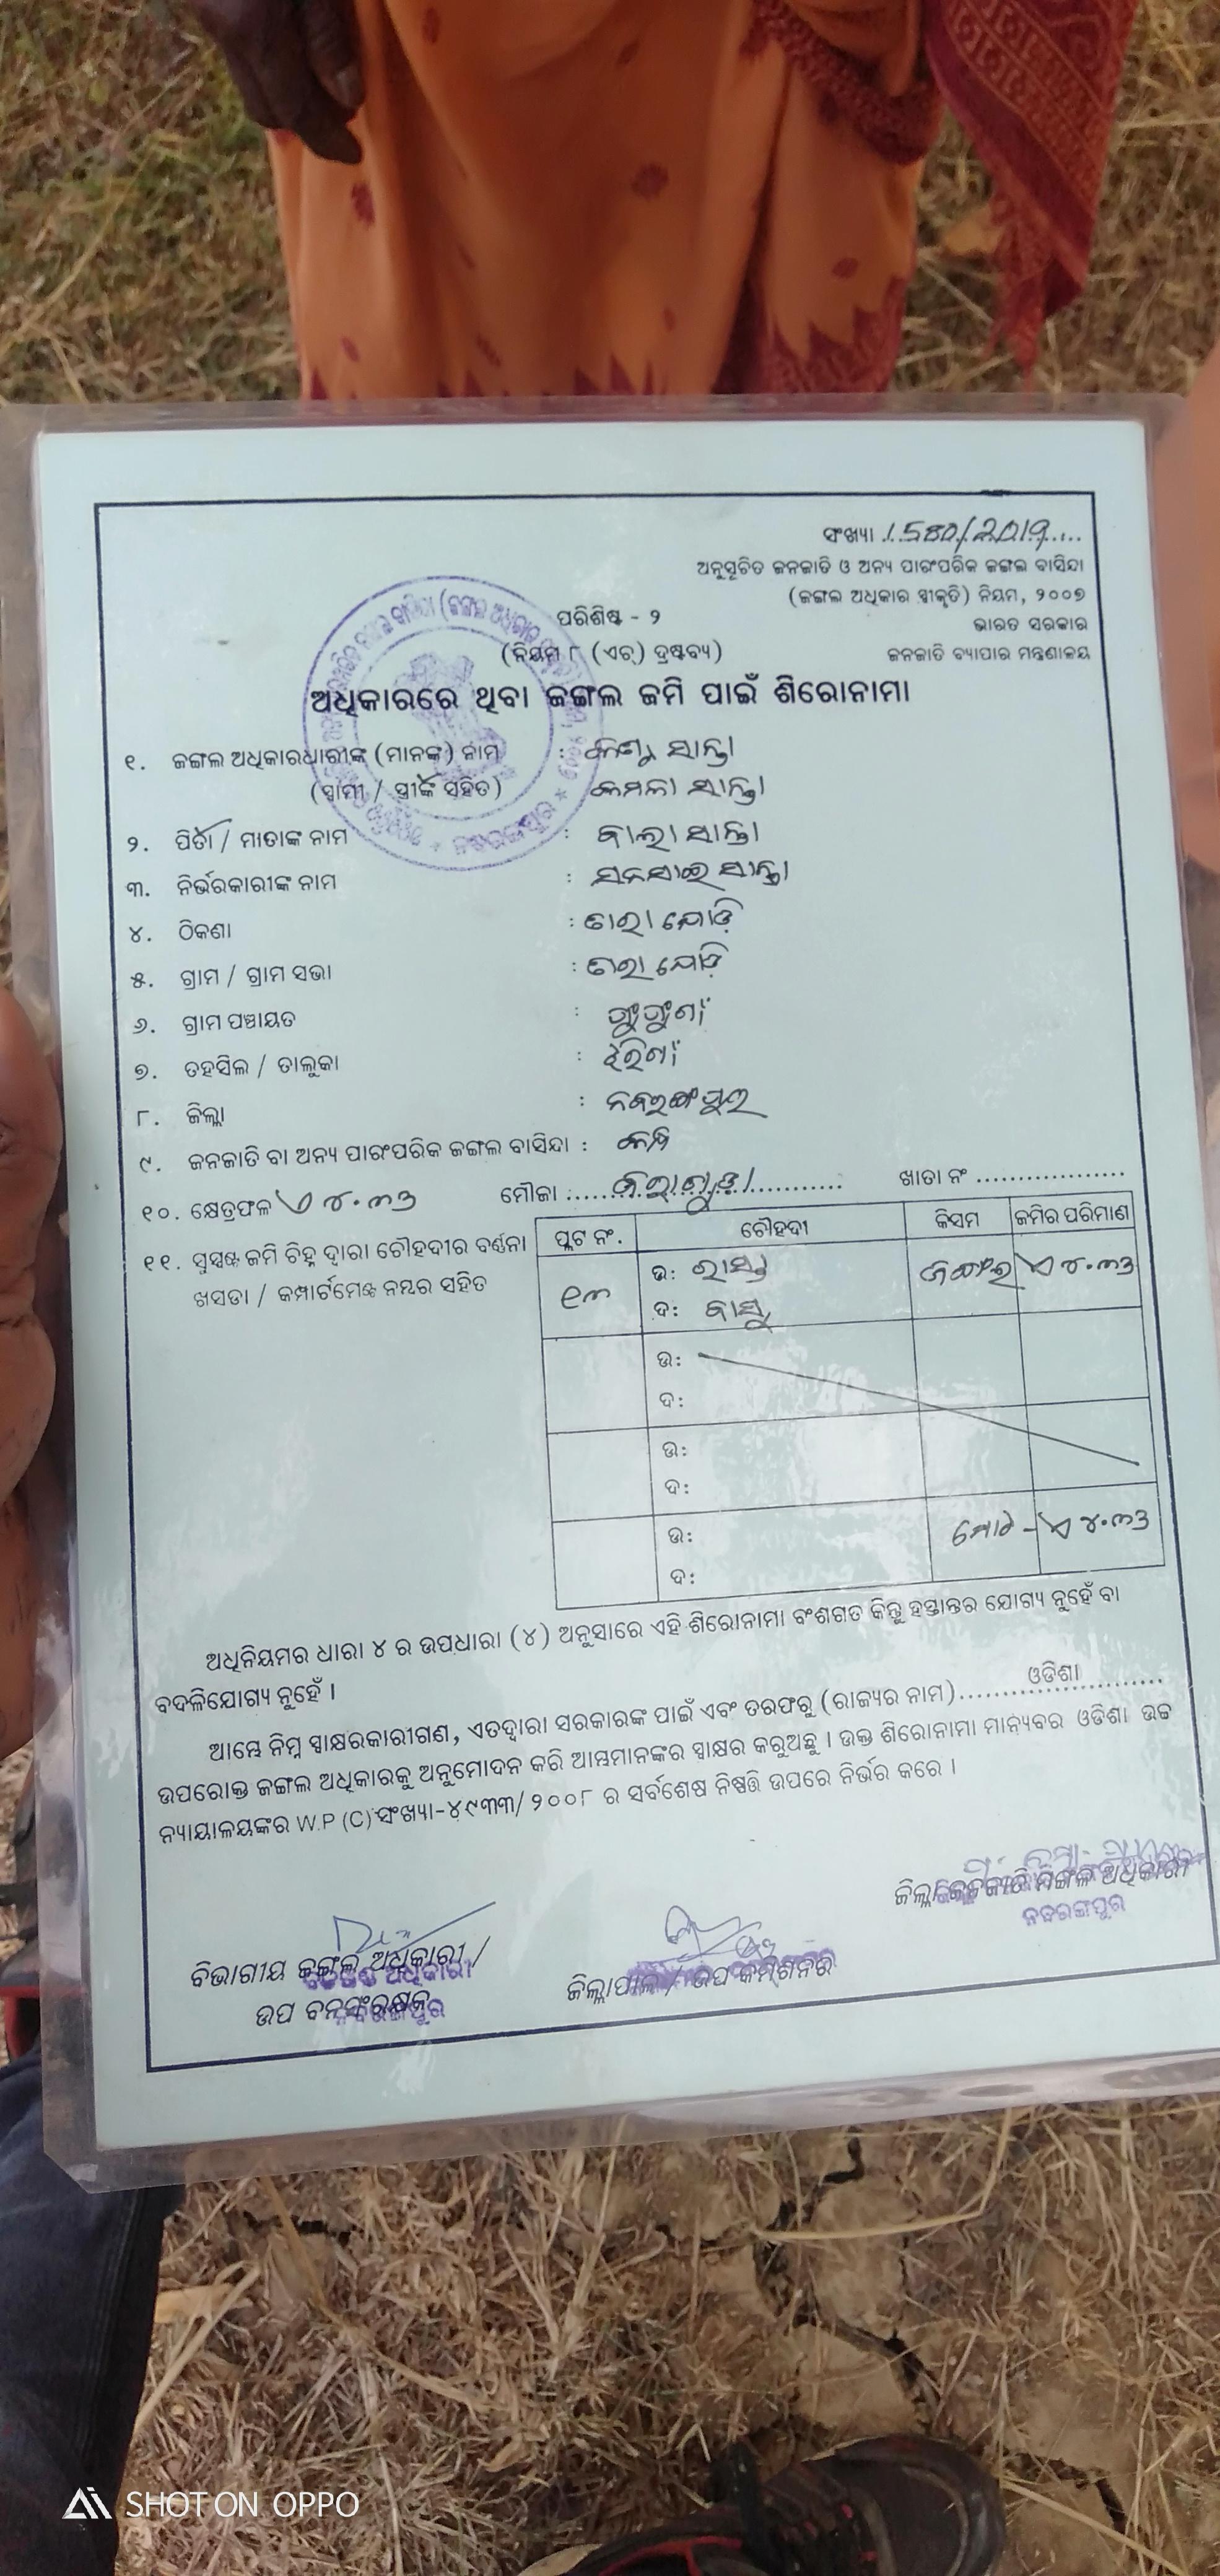 ସଂଖ୍ୟା 1580/2019
ଅନୁସୂଚିତ ଜନଜାତି ଓ ଅନ୍ୟ ପାରଂପରିକ ଜଙ୍ଗଲ ବାସିନ୍ଦା
(ଜଙ୍ଗଲ ଅଧିକାର ସ୍ୱୀକୃତି) ନିୟମ, ୨୦୦୭
ଭାରତ ସରକାର
ଜନଜାତି ବ୍ୟାପାର ମନ୍ତ୍ରଣାଳୟ
ପରିଶିଷ୍ଟ - ୨
(ନିୟମ ୮ (ଏଚ୍) ଦ୍ରଷ୍ଟବ୍ୟ)
ଅଧିକାରରେ ଥିବା ଜଙ୍ଗଲ ଜମି ପାଇଁ ଶିରୋନାମା
୧. ଜଙ୍ଗଲ ଅଧିକାରଧାରୀଙ୍କ (ମାନଙ୍କ) ନାମ : ସାନ୍ତା
(ସ୍ୱାମୀ / ସ୍ତ୍ରୀଙ୍କ ସହିତ) କମଳା ସାନ୍ତା
୨. ପିତା / ମାତାଙ୍କ ନାମ : ବାଲା ସାନ୍ତା
୩. ନିର୍ଭରକାରୀଙ୍କ ନାମ : ସାନ୍ତା
୪. ଠିକଣା :
୫. ଗ୍ରାମ / ଗ୍ରାମ ସଭା :
୬. ଗ୍ରାମ ପଞ୍ଚାୟତ :
୭. ତହସିଲ / ତାଲୁକା : ଝରିଗାଁ
୮. ଜିଲ୍ଲା : ନବରଙ୍ଗପୁର
୯. ଜନଜାତି ବା ଅନ୍ୟ ପାରଂପରିକ ଜଙ୍ଗଲ ବାସିନ୍ଦା :
୧୦. କ୍ଷେତ୍ରଫଳ ଏ ୪.୩୬ ମୌଜା ଖାତା ନଂ
୧୧. ସୁସ୍ପଷ୍ଟ ଜମି ଚିହ୍ନ ଦ୍ୱାରା ଚୌହଦୀର ବର୍ଣ୍ଣନା
ଖସଡା / କମ୍ପାର୍ଟମେଣ୍ଟ ନମ୍ବର ସହିତ
ପ୍ଲଟ ନଂ. ଚୌହଦୀ କିସମ ଜମିର ପରିମାଣ
୧୩ ଉ: ରାସ୍ତା ଜଙ୍ଗଲ ଏ ୪.୩୬
ଦ: ବାସୁ
ଉ:
ଦ:
ଉ:
ଦ:
ଉ: ମୋଟ - ଏ ୪.୩୬
ଦ:
ଅଧିନିୟମର ଧାରା ୪ ର ଉପଧାରା (୪) ଅନୁସାରେ ଏହି ଶିରୋନାମା ବଂଶଗତ କିନ୍ତୁ ହସ୍ତାନ୍ତର ଯୋଗ୍ୟ ନୁହେଁ ବା
ବଦଳିଯୋଗ୍ୟ ନୁହେଁ ।
ଆମ୍ଭେ ନିମ୍ନ ସ୍ୱାକ୍ଷରକାରୀଗଣ, ଏତଦ୍ୱାରା ସରକାରଙ୍କ ପାଇଁ ଏବଂ ତରଫରୁ (ରାଜ୍ୟର ନାମ) ଓଡିଶା
ଉପରୋକ୍ତ ଜଙ୍ଗଲ ଅଧିକାରକୁ ଅନୁମୋଦନ କରି ଆମ୍ଭମାନଙ୍କର ସ୍ୱାକ୍ଷର କରୁଅଛୁ । ଉକ୍ତ ଶିରୋନାମା ମାନ୍ୟବର ଓଡିଶା ଉଚ୍ଚ
ନ୍ୟାୟାଳୟଙ୍କର W.P (C) ସଂଖ୍ୟା-୪୯୩୩/୨୦୦୮ ର ସର୍ବଶେଷ ନିଷ୍ପତ୍ତି ଉପରେ ନିର୍ଭର କରେ ।
ଜିଲ୍ଲା ମଙ୍ଗଳ ଅଧିକାରୀ
ନବରଙ୍ଗପୁର
ବିଭାଗୀୟ ଜଙ୍ଗଲ ଅଧିକାରୀ /
ଉପ ବନସଂରକ୍ଷକ
ଜିଲ୍ଲାପାଳ / ଉପ କମିଶନର
SHOT ON OPPO